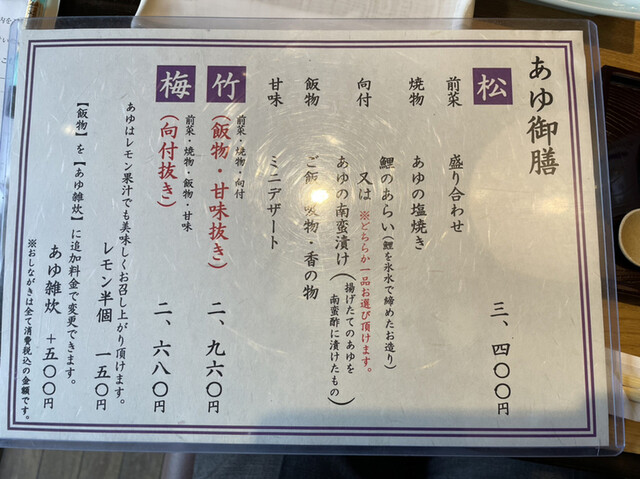 あゆ御膳
松 三、四〇〇円
前菜 盛り合わせ
焼物 あゆの塩焼き
向付 鯉のあらい(鯉を氷水で締めたお造り)
又は ※どちらか一品お選び頂けます。
あゆの南蛮漬け(揚げたてのあゆを南蛮酢に漬けたもの)
飯物 ご飯・吸物・香の物
甘味 ミニデザート
前菜・焼物・向付
竹(飯物・甘味抜き) 二、九六〇円
前菜・焼物・飯物・甘味
梅(向付抜き) 二、六八〇円
あゆはレモン果汁でも美味しくお召し上がり頂けます。
レモン半個 一五〇円
【飯物】を【あゆ雑炊】に追加料金で変更できます。
あゆ雑炊 +五〇〇円
※おしながきは全て消費税込の金額です。